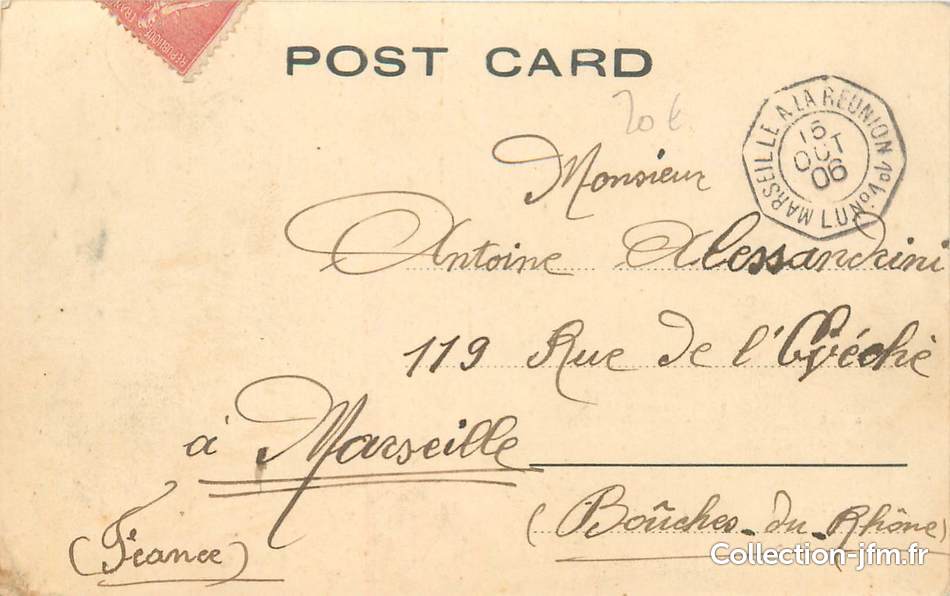 REPUBLIQUE
POST CARD
20 €
MARSEILLE A LA REUNION 1º
LU Nº
16
OCT
06
Monsieur
Antoine Alessandrini
119 Rue de l'Evéché
à Marseille
(Bouches-du-Rhône)
(France)
Collection-jfm.fr